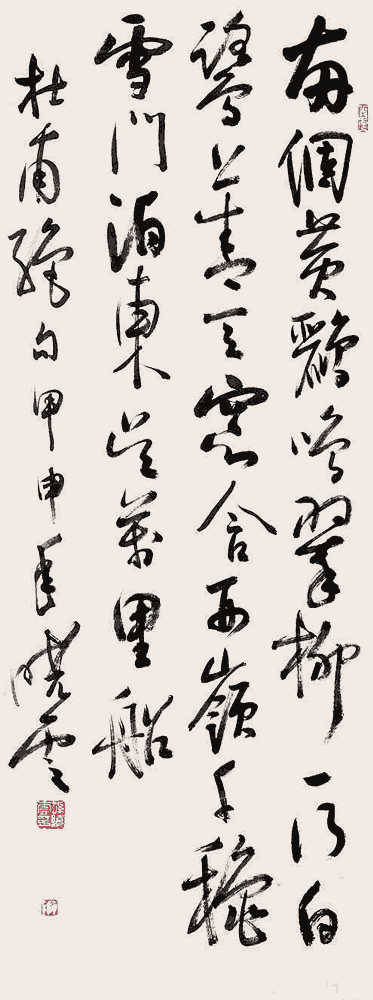 兩個黃鸝鳴翠柳一行白
鷺上青天窗含西嶺千秋
雪門泊東吳萬里船
杜甫絕句甲申年曉雲